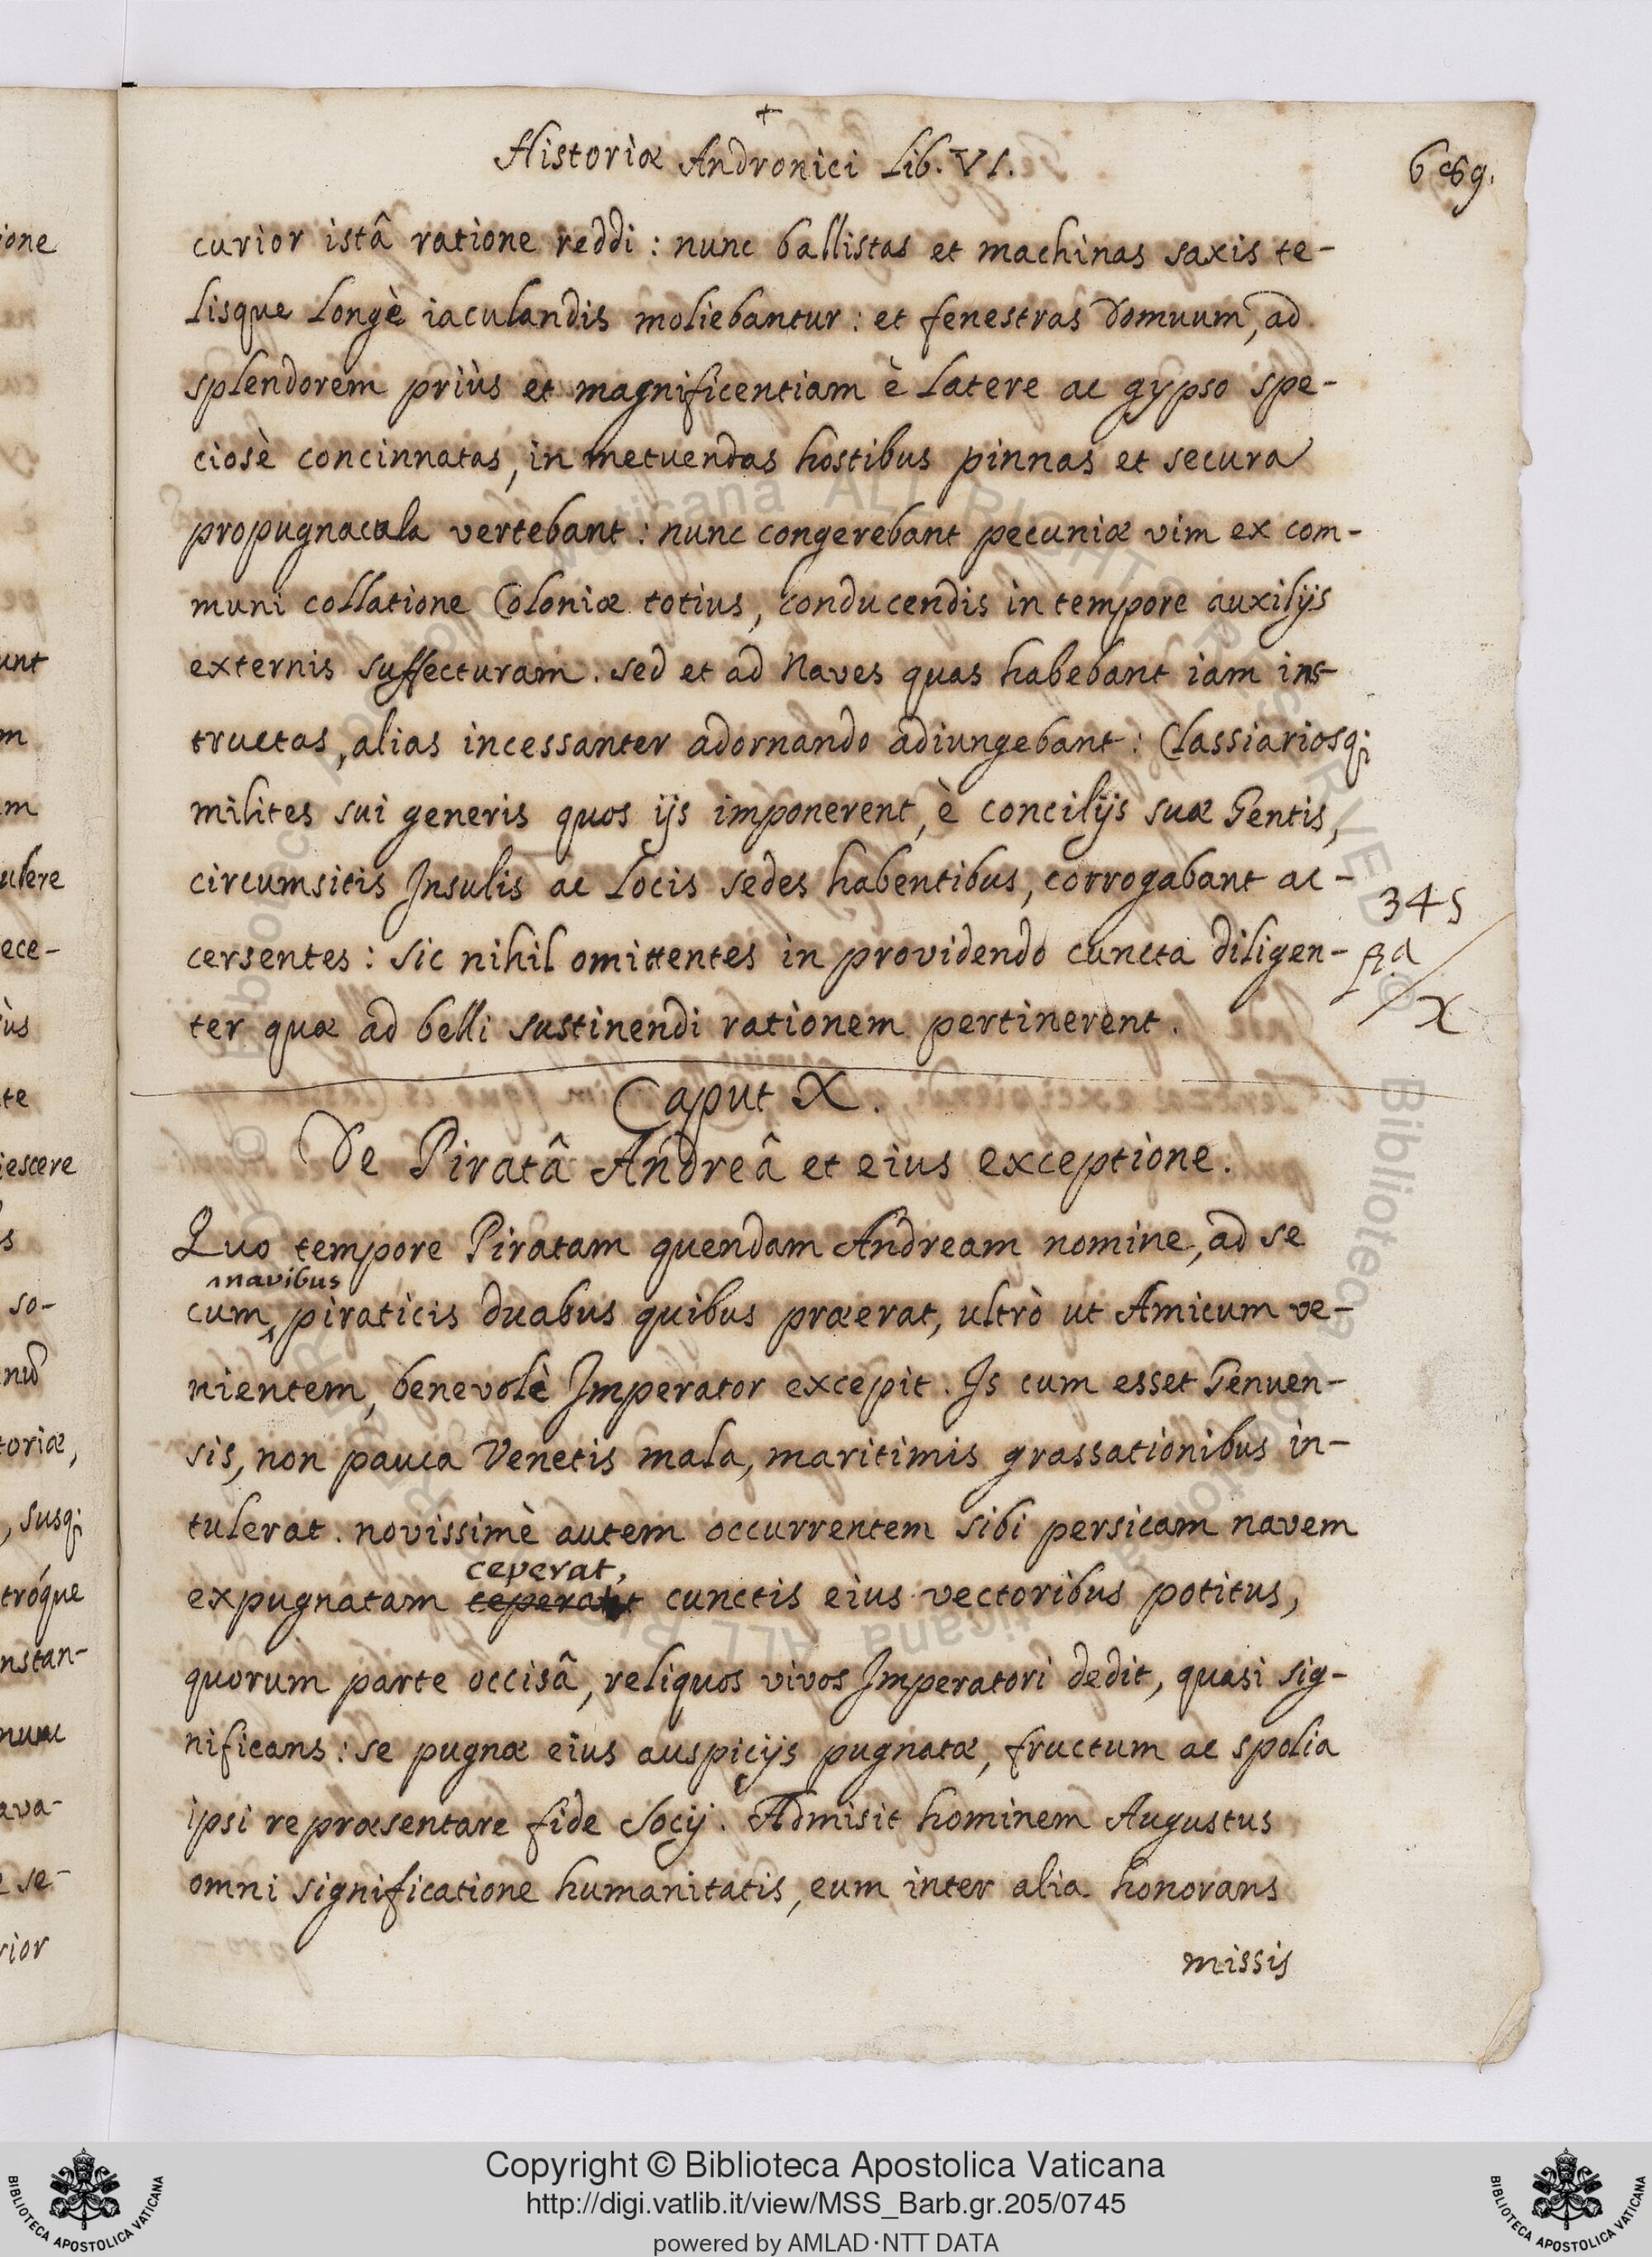 +
Historiæ Andronici Lib. VI.
curior istâ ratione reddi : nunc ballistas et machinas saxis te-
lisque longè iaculandis moliebantur : et fenestras domuum, ad
splendorem priùs et magnificentiam è latere ac gypso spe-
ciosè concinnatas, in metuendas hostibus pinnas et secura
propugnacula vertebant : nunc congerebant pecuniæ vim ex com-
muni collatione Coloniæ totius, conducendis in tempore auxilijs
externis suffecturam. sed et ad Naves quas habebant iam ins-
tructas, alias incessanter adornando adiungebant : Classiariosq;
milites sui generis quos ijs imponerent, è concilijs suæ Gentis,
circumsitis Insulis ac Locis sedes habentibus, corrogabant ac-
cersentes : sic nihil omittentes in providendo cuncta diligen-
ter quæ ad belli sustinendi rationem pertinerent.
345
X
Caput X.
De Piratâ Andreâ et eius exceptione.
Quo tempore Piratam quendam Andream nomine, ad se
navibus
cum piraticis duabus quibus præerat, ultrò ut Amicum ve-
nientem, benevolè Imperator excepit. Is cum esset Genuen-
sis, non pauca Venetis mala, maritimis grassationibus in-
tulerat. novissimè autem occurrentem sibi persicam navem
ceperat,
expugnatam cunctis eius vectoribus potitus,
quorum parte occisâ, reliquos vivos Imperatori dedit, quasi sig-
nificans : se pugnæ eius auspicijs pugnatæ, fructum ac spolia
ipsi repræsentare fide Socij. Admisit hominem Augustus
omni significatione humanitatis, eum inter alia honorans
missis
ione
unt
m
m
ulere
ece-
ùs
te
iescere
s
so-
toriæ,
, susq;
tróque
nstan-
ava-
se-
rior
Copyright © Biblioteca Apostolica Vaticana
http://digi.vatlib.it/view/MSS_Barb.gr.205/0745
powered by AMLAD·NTT DATA
BIBLIOTECA APOSTOLICA VATICANA
BIBLIOTECA APOSTOLICA VATICANA